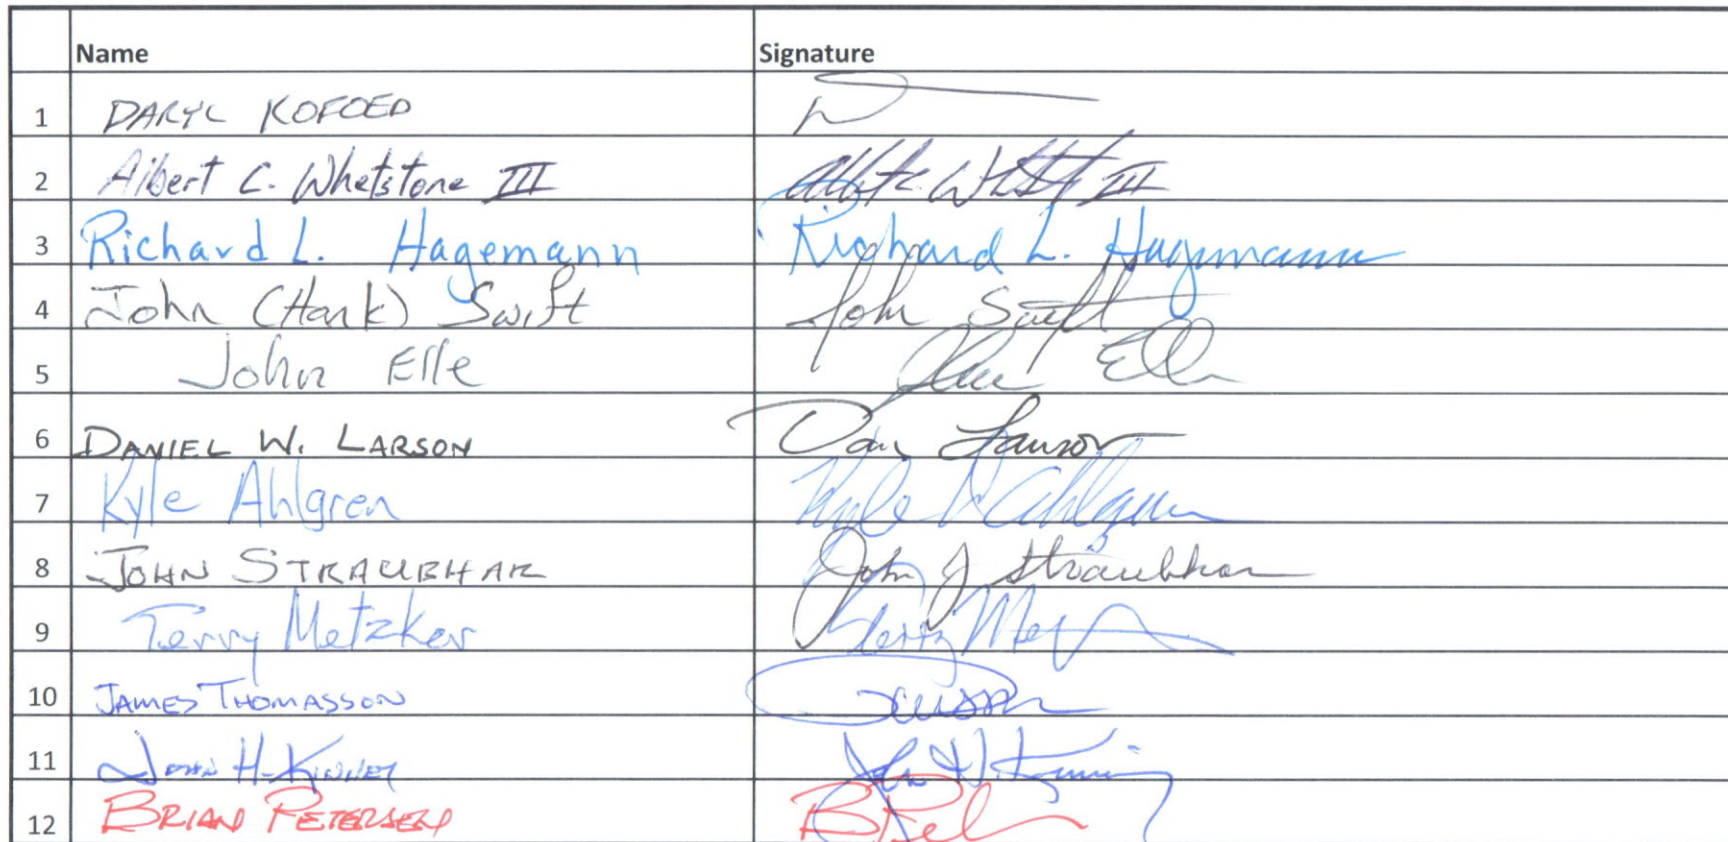 Name Signature
1 DARYL KOFOED
2 Albert C. Whetstone III Albert C. Whetstone III
3 Richard L. Hagemann Richard L. Hagemann
4 John (Hank) Swift John Swift
5 John Elle John Elle
6 DANIEL W. LARSON Dan Larson
7 Kyle Ahlgren Kyle Ahlgren
8 JOHN STRAUBHAR John J Straubhar
9 Terry Metzker Terry
10 JAMES THOMASSON
11 JOHN H. KINNEY John H. Kinney
12 BRIAN PETERSEN